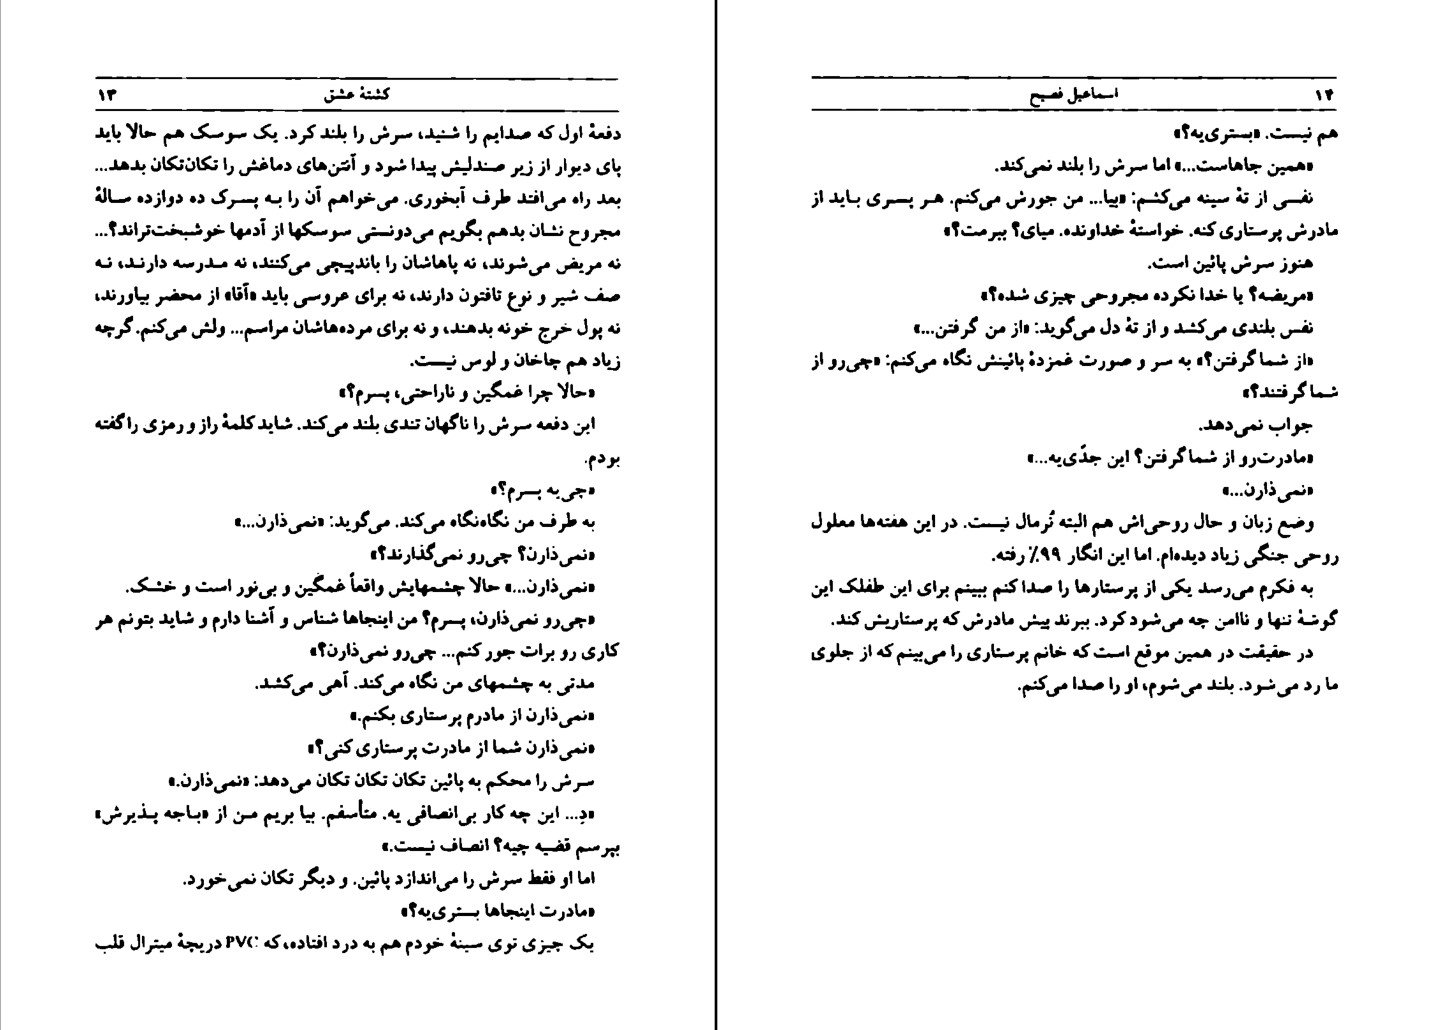 کشتهٔ عشق ۱۳
دفعهٔ اول که صدایم را شنید، سرش را بلند کرد. یک سوسک هم حالا باید
پای دیوار از زیر صندلیش پیدا شود و آنتن‌های دماغش را تکان‌تکان بدهد...
بعد راه می‌افتد طرف آبخوری. می‌خواهم آن را به پسرک ده دوازده سالهٔ
مجروح نشان بدهم بگویم می‌دونستی سوسکها از آدمها خوشبخت‌تراند؟...
نه مریض می‌شوند، نه پاهاشان را باندپیچی می‌کنند، نه مدرسه دارند، نه
صف شیر و نوع تافتون دارند، نه برای عروسی باید «آقا» از محضر بیاورند،
نه پول خرج خونه بدهند، و نه برای مرده‌هاشان مراسم... ولش می‌کنم. گرچه
زیاد هم چاخان و لوس نیست.
«حالا چرا غمگین و ناراحتی، پسرم؟»
این دفعه سرش را ناگهان تندی بلند می‌کند. شاید کلمهٔ راز و رمزی را گفته
بودم.
«چی‌یه پسرم؟»
به طرف من نگاه‌نگاه می‌کند. می‌گوید: «نمی‌ذارن...»
«نمی‌ذارن؟ چی‌رو نمی‌گذارند؟»
«نمی‌ذارن...» حالا چشمهایش واقعاً غمگین و بی‌نور است و خشک.
«چی‌رو نمی‌ذارن، پسرم؟ من اینجاها شناس و آشنا دارم و شاید بتونم هر
کاری رو برات جور کنم... چی‌رو نمی‌ذارن؟»
مدتی به چشمهای من نگاه می‌کند. آهی می‌کشد.
«نمی‌ذارن از مادرم پرستاری بکنم.»
«نمی‌ذارن شما از مادرت پرستاری کنی؟»
سرش را محکم به پائین تکان تکان تکان می‌دهد: «نمی‌ذارن.»
«دِ... این چه کار بی‌انصافی یه. متأسفم. بیا بریم من از «باجه پذیرش»
بپرسم قضیه چیه؟ انصاف نیست.»
اما او فقط سرش را می‌اندازد پائین. و دیگر تکان نمی‌خورد.
«مادرت اینجاها بستری‌یه؟»
یک چیزی توی سینهٔ خودم هم به درد افتاده، که PVC دریچهٔ میترال قلب
۱۴ اسماعیل فصیح
هم نیست. «بستری‌یه؟»
«همین جاهاست...» اما سرش را بلند نمی‌کند.
نفسی از تهٔ سینه می‌کشم: «بیا... من جورش می‌کنم. هر پسری باید از
مادرش پرستاری کنه. خواستهٔ خداونده. میای؟ ببرمت؟»
هنوز سرش پائین است.
«مریضه؟ یا خدا نکرده مجروحی چیزی شده؟»
نفس بلندی می‌کشد و از تهٔ دل می‌گوید: «از من گرفتن...»
«از شما گرفتن؟» به سر و صورت غمزدهٔ پائینش نگاه می‌کنم: «چی‌رو از
شما گرفتند؟»
جواب نمی‌دهد.
«مادرت‌رو از شما گرفتن؟ این جدّی‌یه...»
«نمی‌ذارن...»
وضع زبان و حال روحی‌اش هم البته نُرمال نیست. در این هفته‌ها معلول
روحی جنگی زیاد دیده‌ام. اما این انگار ۹۹٪ رفته.
به فکرم می‌رسد یکی از پرستارها را صدا کنم ببینم برای این طفلک این
گوشهٔ تنها و ناامن چه می‌شود کرد. ببرند پیش مادرش که پرستاریش کند.
در حقیقت در همین موقع است که خانم پرستاری را می‌بینم که از جلوی
ما رد می‌شود. بلند می‌شوم، او را صدا می‌کنم.